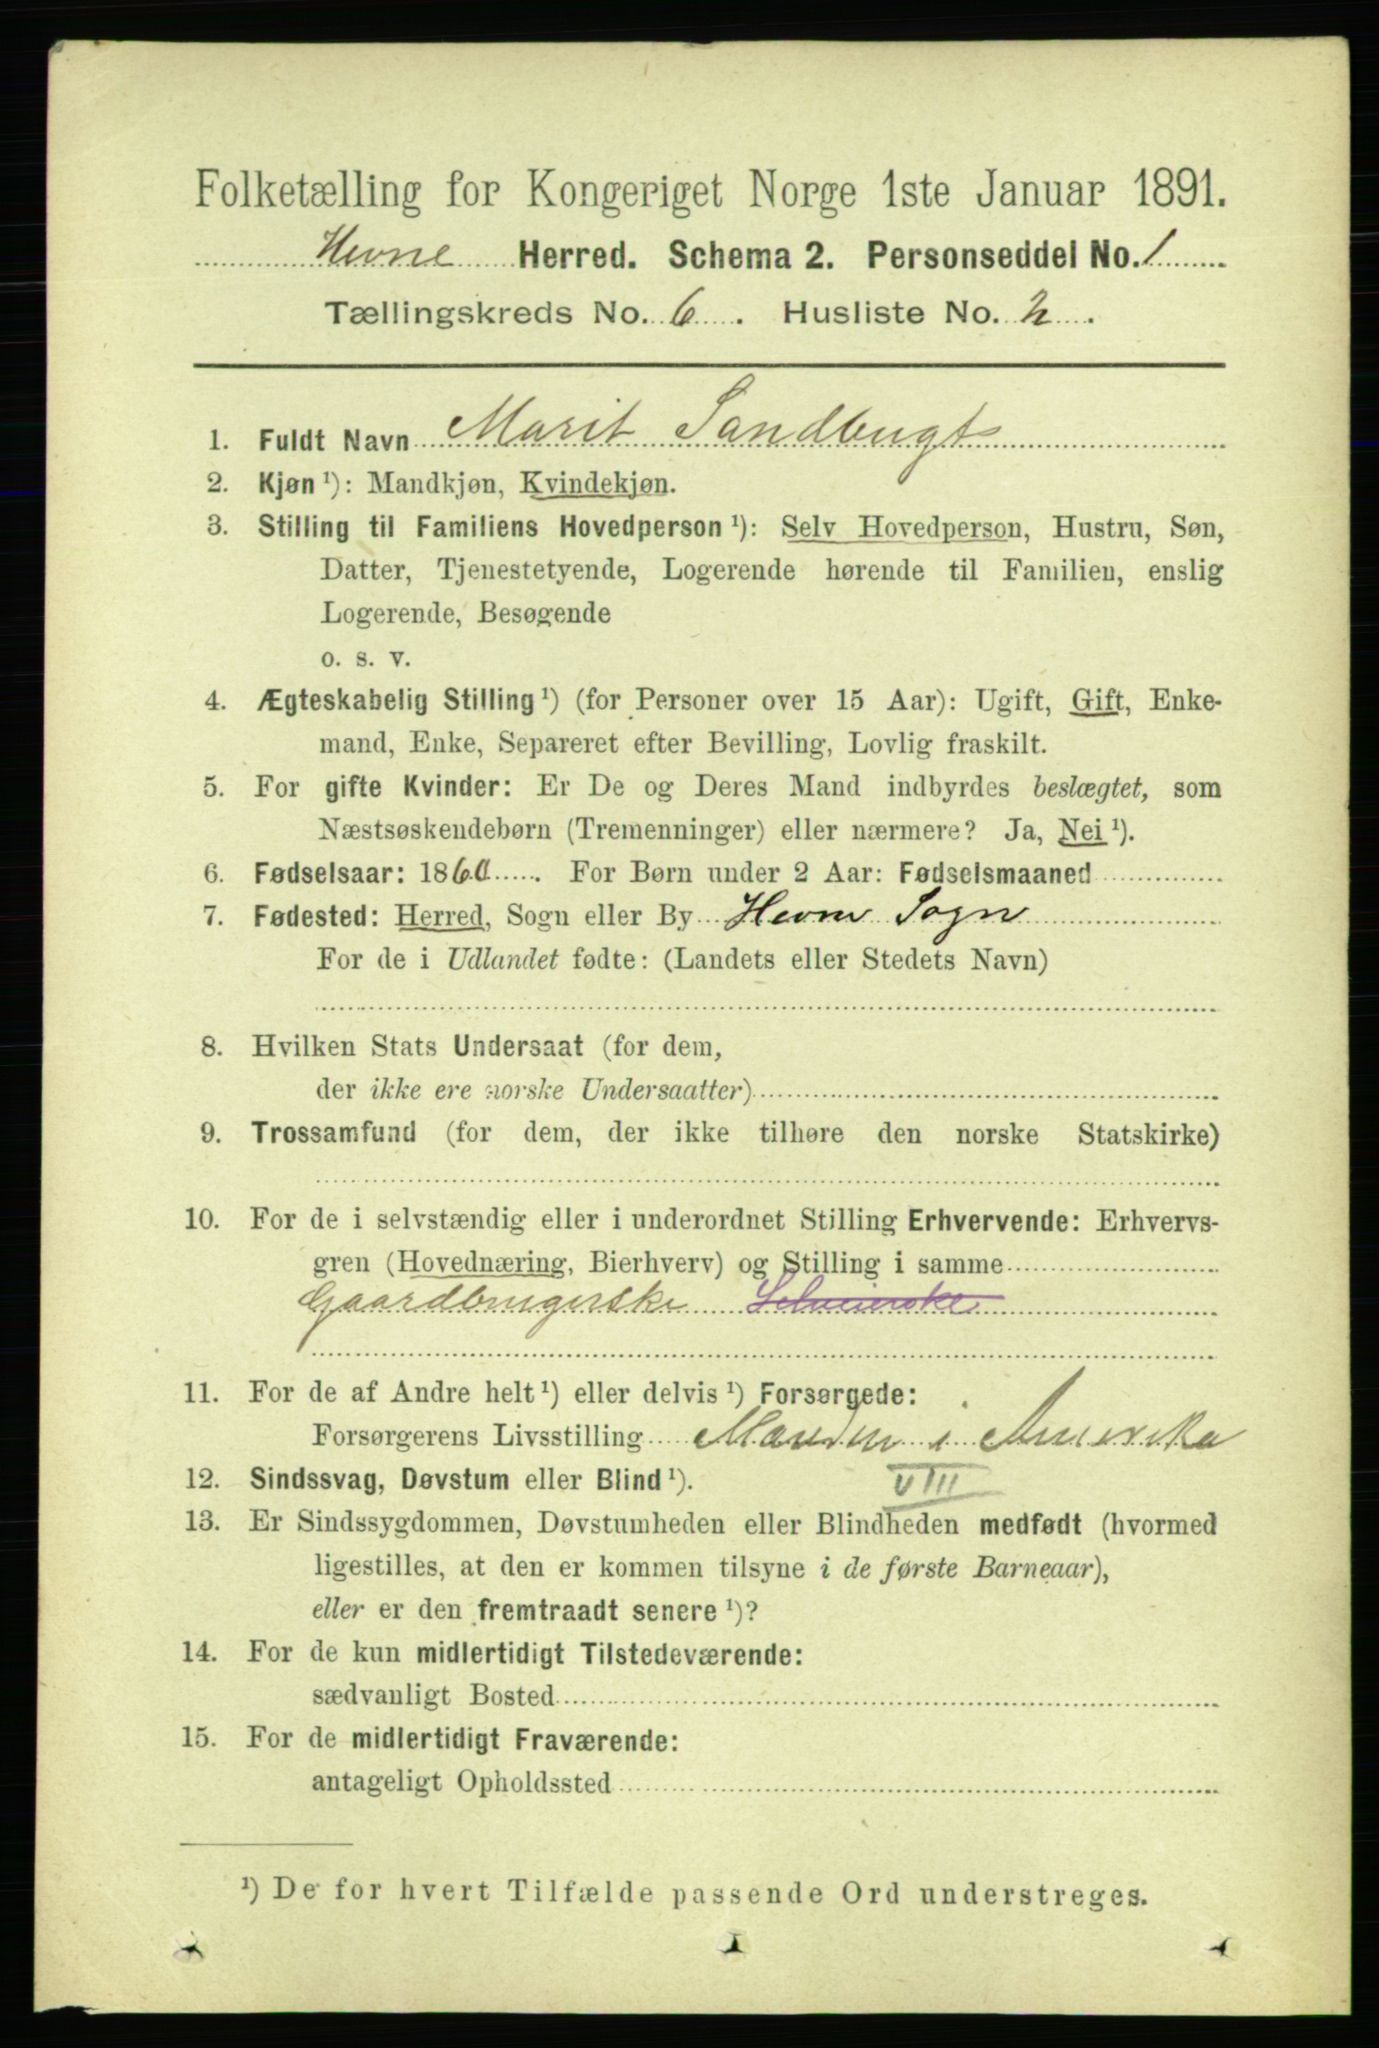 Folketælling for Kongeriget Norge 1ste Januar 1891.
Hevne Herred. Schema 2. Personseddel No. 1
Tællingskreds No. 6. Husliste No. 2.
1. Fuldt Navn Marit Sandbugt
2. Kjøn ¹): Mandkjøn, Kvindekjøn.
3. Stilling til Familiens Hovedperson ¹): Selv Hovedperson, Hustru, Søn,
Datter, Tjenestetyende, Logerende hørende til Familien, enslig
Logerende, Besøgende
o. s. v.
4. Ægteskabelig Stilling ¹) (for Personer over 15 Aar): Ugift, Gift, Enke-
mand, Enke, Separeret efter Bevilling, Lovlig fraskilt.
5. For gifte Kvinder: Er De og Deres Mand indbyrdes beslægtet, som
Næstsøskendebørn (Tremenninger) eller nærmere? Ja, Nei ¹).
6. Fødselsaar: 1860. For Børn under 2 Aar: Fødselsmaaned
7. Fødested: Herred, Sogn eller By Hevne Sogn
For de i Udlandet fødte: (Landets eller Stedets Navn)
8. Hvilken Stats Undersaat (for dem,
der ikke ere norske Undersaatter)
9. Trossamfund (for dem, der ikke tilhøre den norske Statskirke)
10. For de i selvstændig eller i underordnet Stilling Erhvervende: Erhvervs-
gren (Hovednæring, Bierhverv) og Stilling i samme
Gaardbrugerske Selveierske
11. For de af Andre helt ¹) eller delvis ¹) Forsørgede:
Forsørgerens Livsstilling Manden i Amerika
12. Sindssvag, Døvstum eller Blind ¹). VIII
13. Er Sindssygdommen, Døvstumheden eller Blindheden medfødt (hvormed
ligestilles, at den er kommen tilsyne i de første Barneaar),
eller er den fremtraadt senere ¹)?
14. For de kun midlertidigt Tilstedeværende:
sædvanligt Bosted
15. For de midlertidigt Fraværende:
antageligt Opholdssted
¹) De for hvert Tilfælde passende Ord understreges.